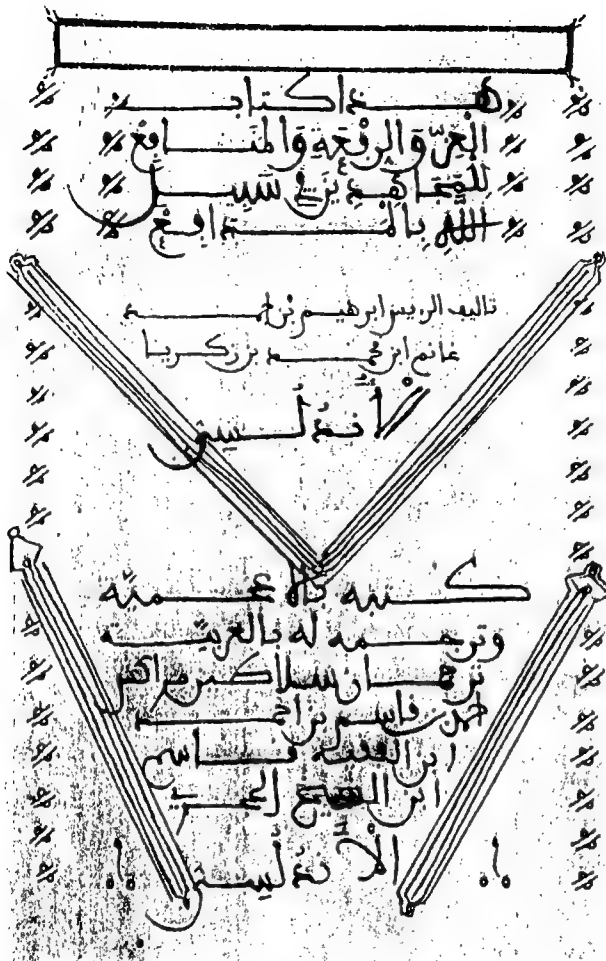 هذا كتاب
الْعِزّ وَالرِفْعَةِ وَالْمَنَافِعْ
لِلْمُجَاهِدِينَ فِي سَبِيلِ
اللَّهِ بِالْمَدَافِعْ
تاليف الريس ابرهيم بن احمد
غانم ابن محمد بن زكريا
الأَنْدَلُسِي
كتبه بالاعجمية
وترجمه له بالعربية
ترجمان سلاطين مراكش
احمد بن قاسم بن احمد
ابن الفقيه قاسم
ابن الشيخ الحجري
الْأَنْدَلُسِي